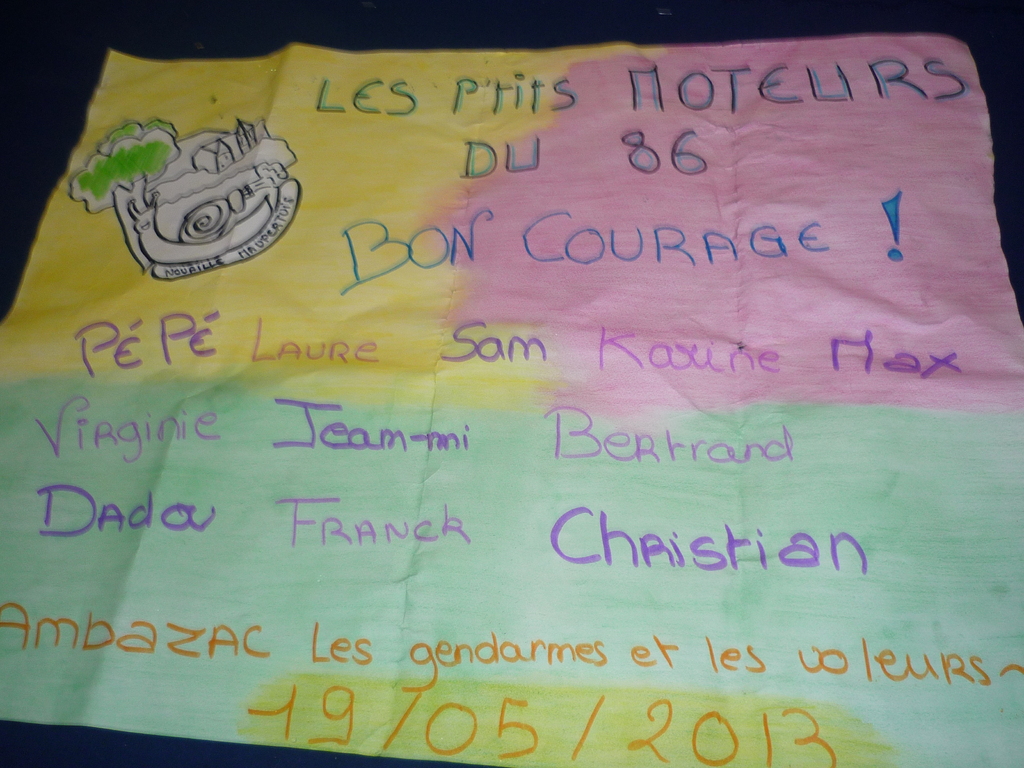 LES P'tits MOTEURS
DU 86
BON COURAGE !
NOUAILLE MAUPERTUIS
PÉPÉ LAURE Sam Karine Max
Virginie Jean-mi Bertrand
Dadou FRANCK Christian
AmbazAC Les gendarmes et les voleurs~
19/05/2013